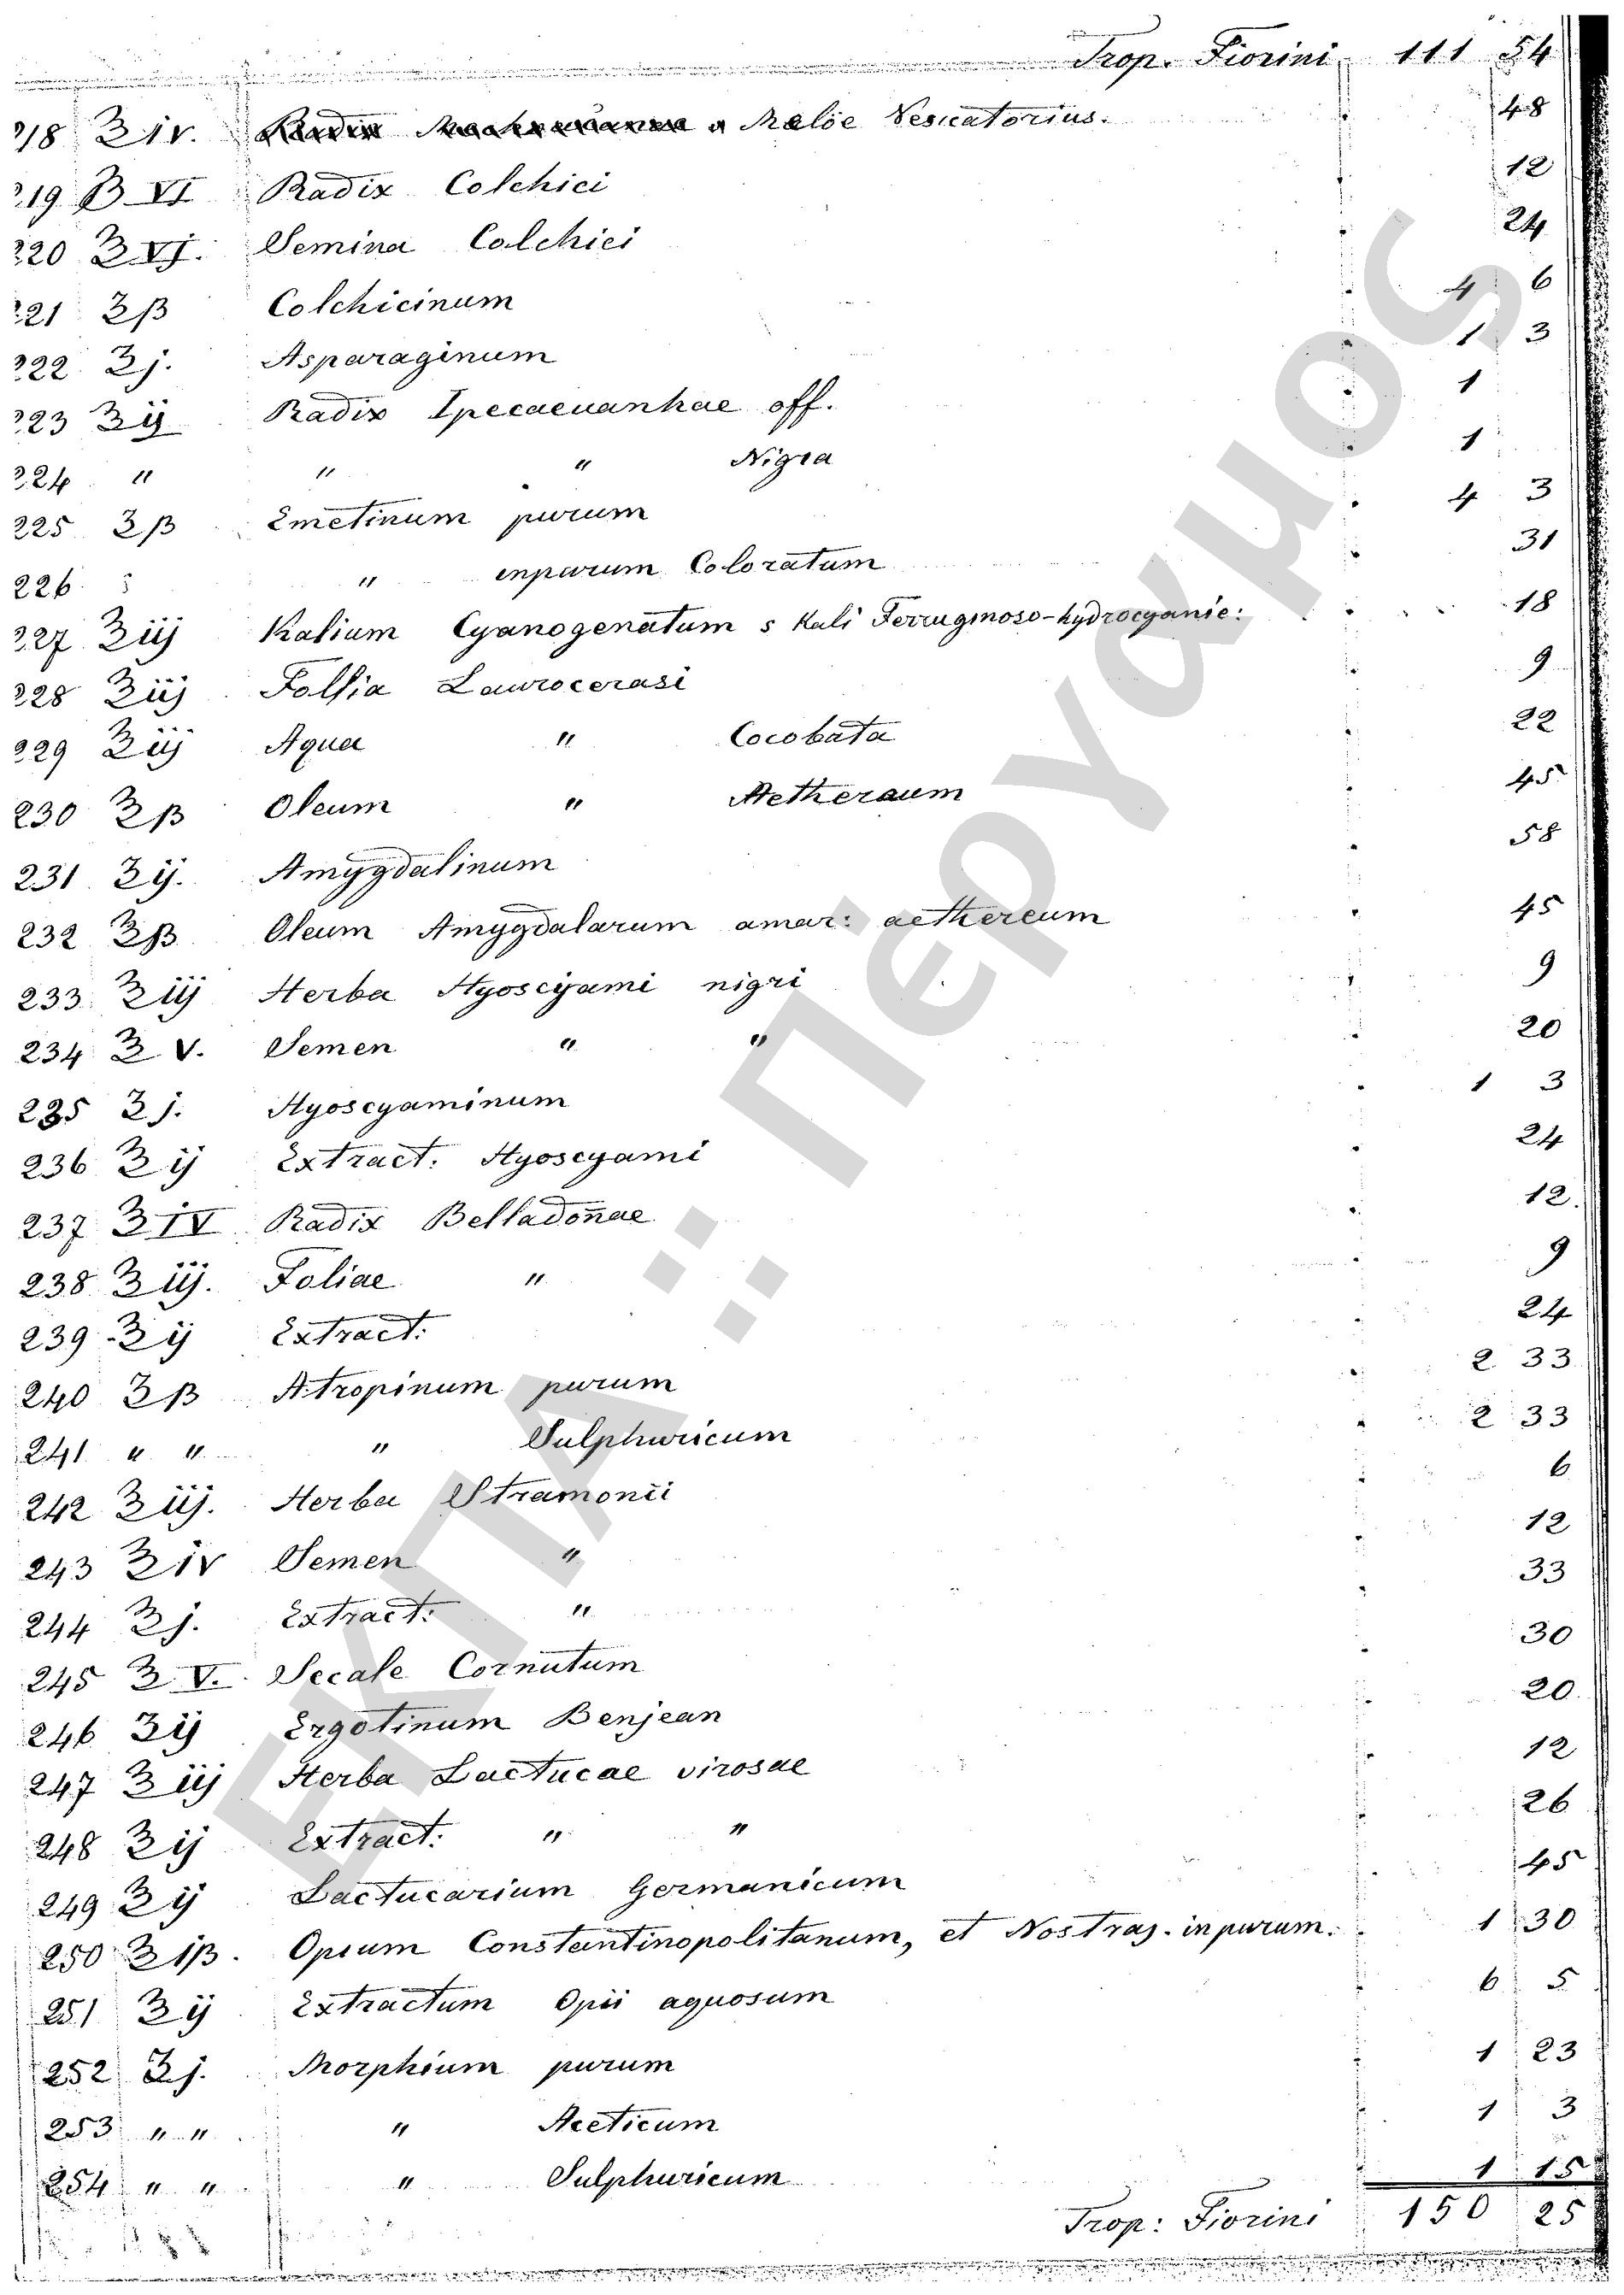 Trop. Fiorini 111 54
218 ʒ iv. Meloe Vesicatorius. 48
219 ℥ VI Radix Colchici 12
220 ℥ VI. Semina Colchici 24
221 ʒß Colchicinum 4 6
222 ʒj. Asparaginum 1 3
223 ℥ij Radix Ipecacuanhae off. 1
224 " " " Nigra 1
225 ʒß Emetinum purum 4 3
226 " enpurum Coloratum 31
227 ℥iij Kalium Cyanogenatum s Kali Ferruginoso-hydrocyanic: 18
228 ℥iij Follia Laurocerasi 9
229 ℥iij Aqua " Cocobata 22
230 ℥ß Oleum " Aetheraum 45
231 ʒij. Amygdalinum 58
232 ℥ß Oleum Amygdalarum amar: aethereum 45
233 ℥iij Herba Hyoscyami nigri 9
234 ℥ V. Semen " " 20
235 ʒj. Hyoscyaminum 1 3
236 ℥ij Extract. Hyoscyami 24
237 ℥ IV Radix Belladoñae 12.
238 ℥iij. Foliae " 9
239 ℥ij Extract: 24
240 ʒß Atropinum purum 2 33
241 " " " Sulphuricum 2 33
242 ℥iij. Herba Stramonii 6
243 ℥iv Semen " 12
244 ℥j. Extract: " 33
245 ℥ V. Secale Cornutum 30
246 ʒij Ergotinum Benjean 20
247 ℥iij Herba Lactucae virosae 12
248 ℥ij Extract: " " 26
249 ℥ij Lactucarium Germanicum 45
250 ℥iß. Opium Constantinopolitanum, et Nostras. inpurum. 1 30
251 ℥ij Extractum Opii aquosum 6 5
252 ʒj. Morphium purum 1 23
253 " " " Aceticum 1 3
254 " " " Sulphuricum 1 15
Trop: Fiorini 150 25
ΕΚΠΑ :: Πέργαμος